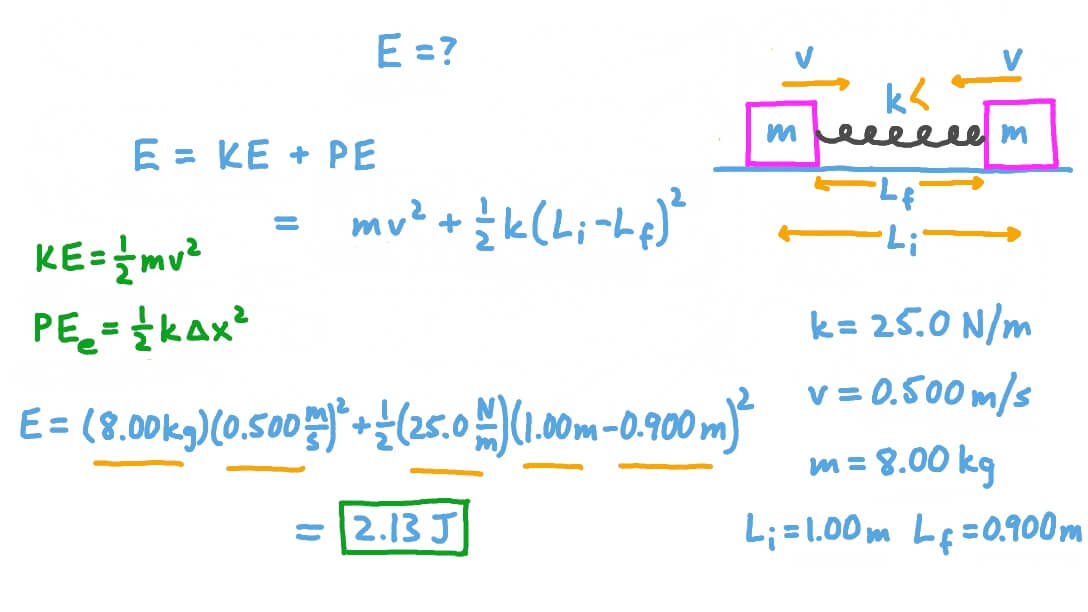 E = ?
v v
k
m m
L_f
L_i
E = KE + PE
= mv² + ½ k(L_i - L_f)²
KE = ½ mv²
PE_e = ½ k Δx²
k = 25.0 N/m
v = 0.500 m/s
m = 8.00 kg
L_i = 1.00 m L_f = 0.900 m
E = (8.00 kg)(0.500 m/s)² + ½ (25.0 N/m)(1.00 m - 0.900 m)²
= 2.13 J